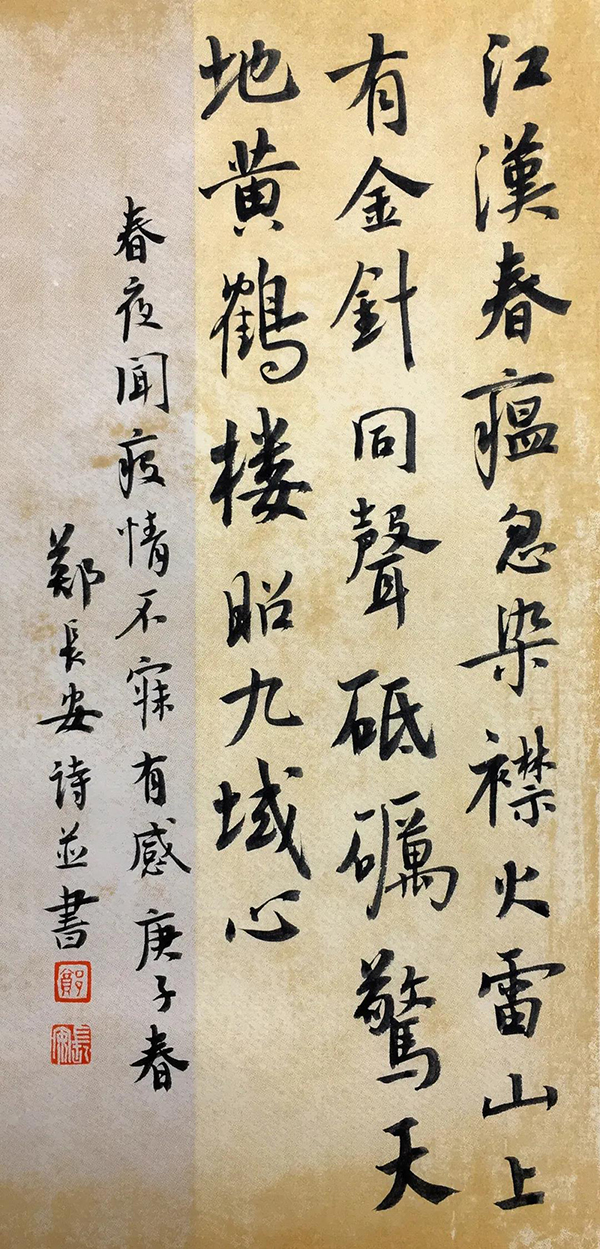 江漢春瘟忽染襟火雷山上
有金針同聲砥礪驚天
地黄鶴楼昭九域心
春夜聞疫情不寐有感庚子春
鄭長安詩並書
鄭
長安